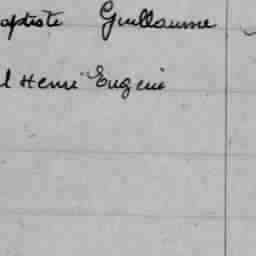 aptiste Guillaume
l Henri Eugène